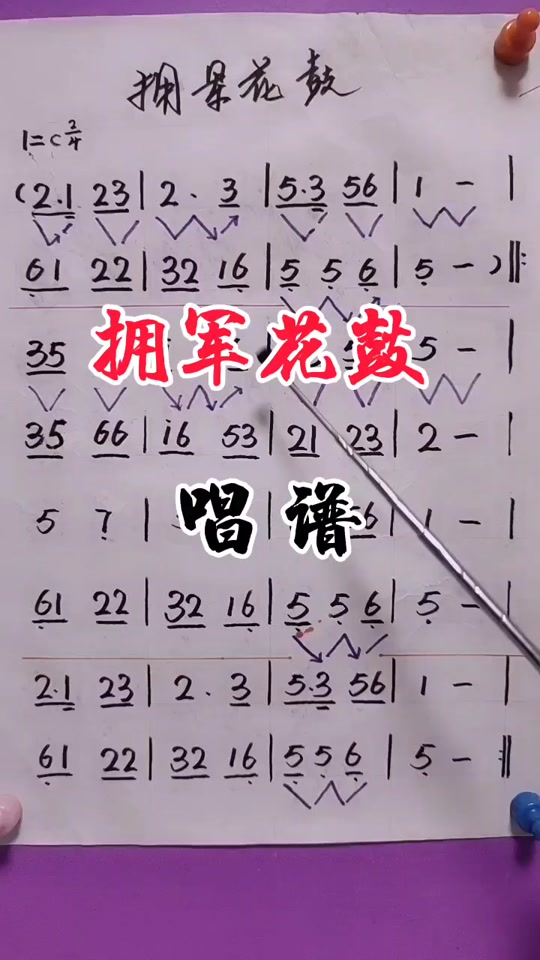 拥军花鼓
1=C 2/4
(2.1 23 | 2. 3 | 5.3 56 | 1 - |
61 22 | 32 16 | 5 5 6 | 5 - ) :
35 5 - |
拥军花鼓
35 66 | i6 53 | 21 23 | 2 - |
5 7 | 6 | 1 - |
唱谱
61 22 | 32 16 | 5 5 6 | 5 - |
2.1 23 | 2. 3 | 5.3 56 | 1 - |
61 22 | 32 16 | 5 5 6 | 5 - :